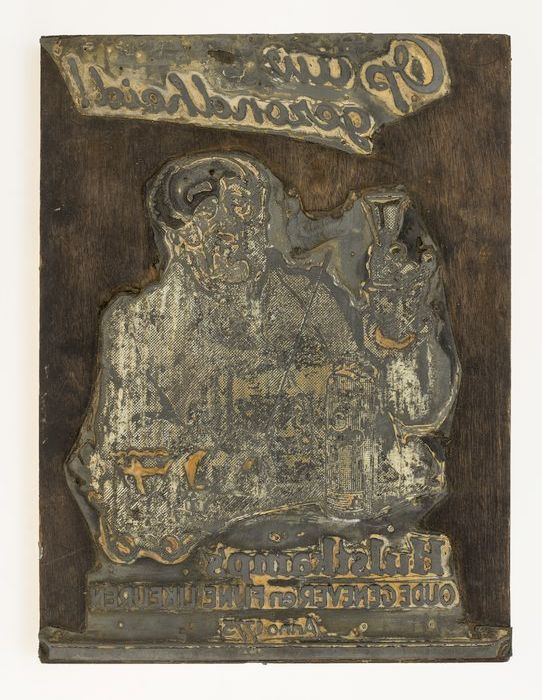 Op uw
gezondheid!
Hulstkamp's
OUDE GENEVER en FIJNE LIKEUREN
Anno 1775